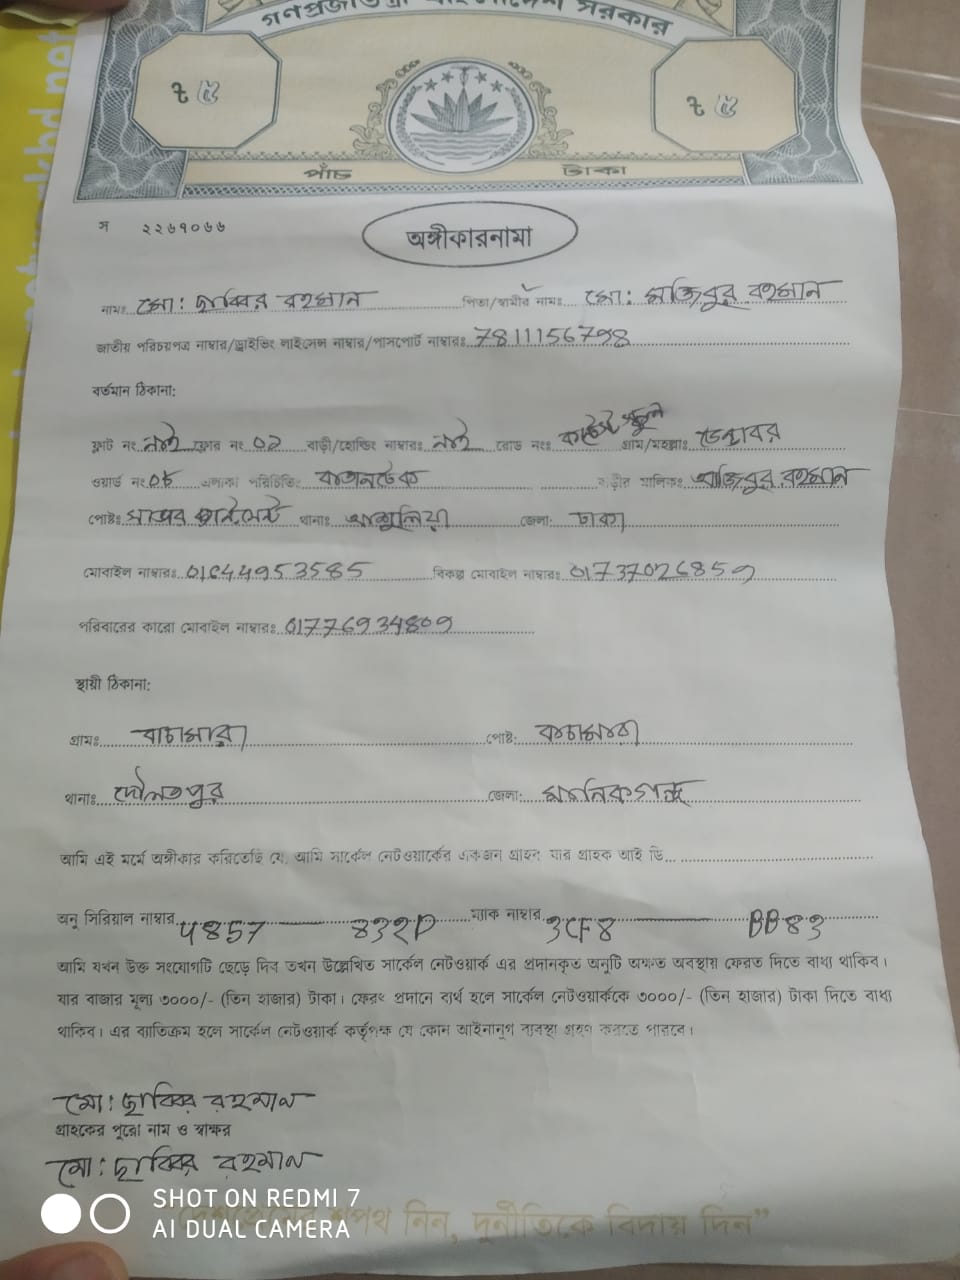 গণপ্রজাতন্ত্রী বাংলাদেশ সরকার
৳ ৫
৳ ৫
পাঁচ টাকা
স ২২৬৭০৬৬
অঙ্গীকারনামা
নামঃ মো: ছাব্বির রহমান পিতা/স্বামীর নামঃ মো: মজিবুর রহমান
জাতীয় পরিচয়পত্র নাম্বার/ড্রাইভিং লাইসেন্স নাম্বার/পাসপোর্ট নাম্বারঃ 7811156798
বর্তমান ঠিকানা:
ফ্লাট নং নাই ফ্লোর নং ০১ বাড়ী/হোল্ডিং নাম্বারঃ নাই রোড নংঃ স্কুল গ্রাম/মহল্লাঃ ডেন্ডাবর
ওয়ার্ড নং ০৮ এলাকা পরিচিতিঃ বাড়ীর মালিকঃ মজিবুর রহমান
পোষ্টঃ থানাঃ আশুলিয়া জেলা: ঢাকা
মোবাইল নাম্বারঃ 01644953585 বিকল্প মোবাইল নাম্বারঃ 01737026859
পরিবারের কারো মোবাইল নাম্বারঃ 01776934809
স্থায়ী ঠিকানা:
গ্রামঃ বাচামারা পোষ্ট: বাচামারা
থানাঃ দৌলতপুর জেলা: মানিকগঞ্জ
আমি এই মর্মে অঙ্গীকার করিতেছি যে, আমি সার্কেল নেটওয়ার্কের একজন গ্রাহক যার গ্রাহক আই ডি
অনু সিরিয়াল নাম্বার 4857 — 832D ম্যাক নাম্বার 3CF8 — BB83
আমি যখন উক্ত সংযোগটি ছেড়ে দিব তখন উল্লেখিত সার্কেল নেটওয়ার্ক এর প্রদানকৃত অনুটি অক্ষত অবস্থায় ফেরত দিতে বাধ্য থাকিব।
যার বাজার মূল্য ৩০০০/- (তিন হাজার) টাকা। ফেরৎ প্রদানে ব্যর্থ হলে সার্কেল নেটওয়ার্ককে ৩০০০/- (তিন হাজার) টাকা দিতে বাধ্য
থাকিব। এর ব্যতিক্রম হলে সার্কেল নেটওয়ার্ক কর্তৃপক্ষ যে কোন আইনানুগ ব্যবস্থা গ্রহণ করতে পারবে।
মো: ছাব্বির রহমান
গ্রাহকের পুরো নাম ও স্বাক্ষর
মো: ছাব্বির রহমান
শপথ নিন, দুর্নীতিকে বিদায় দিন"
SHOT ON REDMI 7
AI DUAL CAMERA